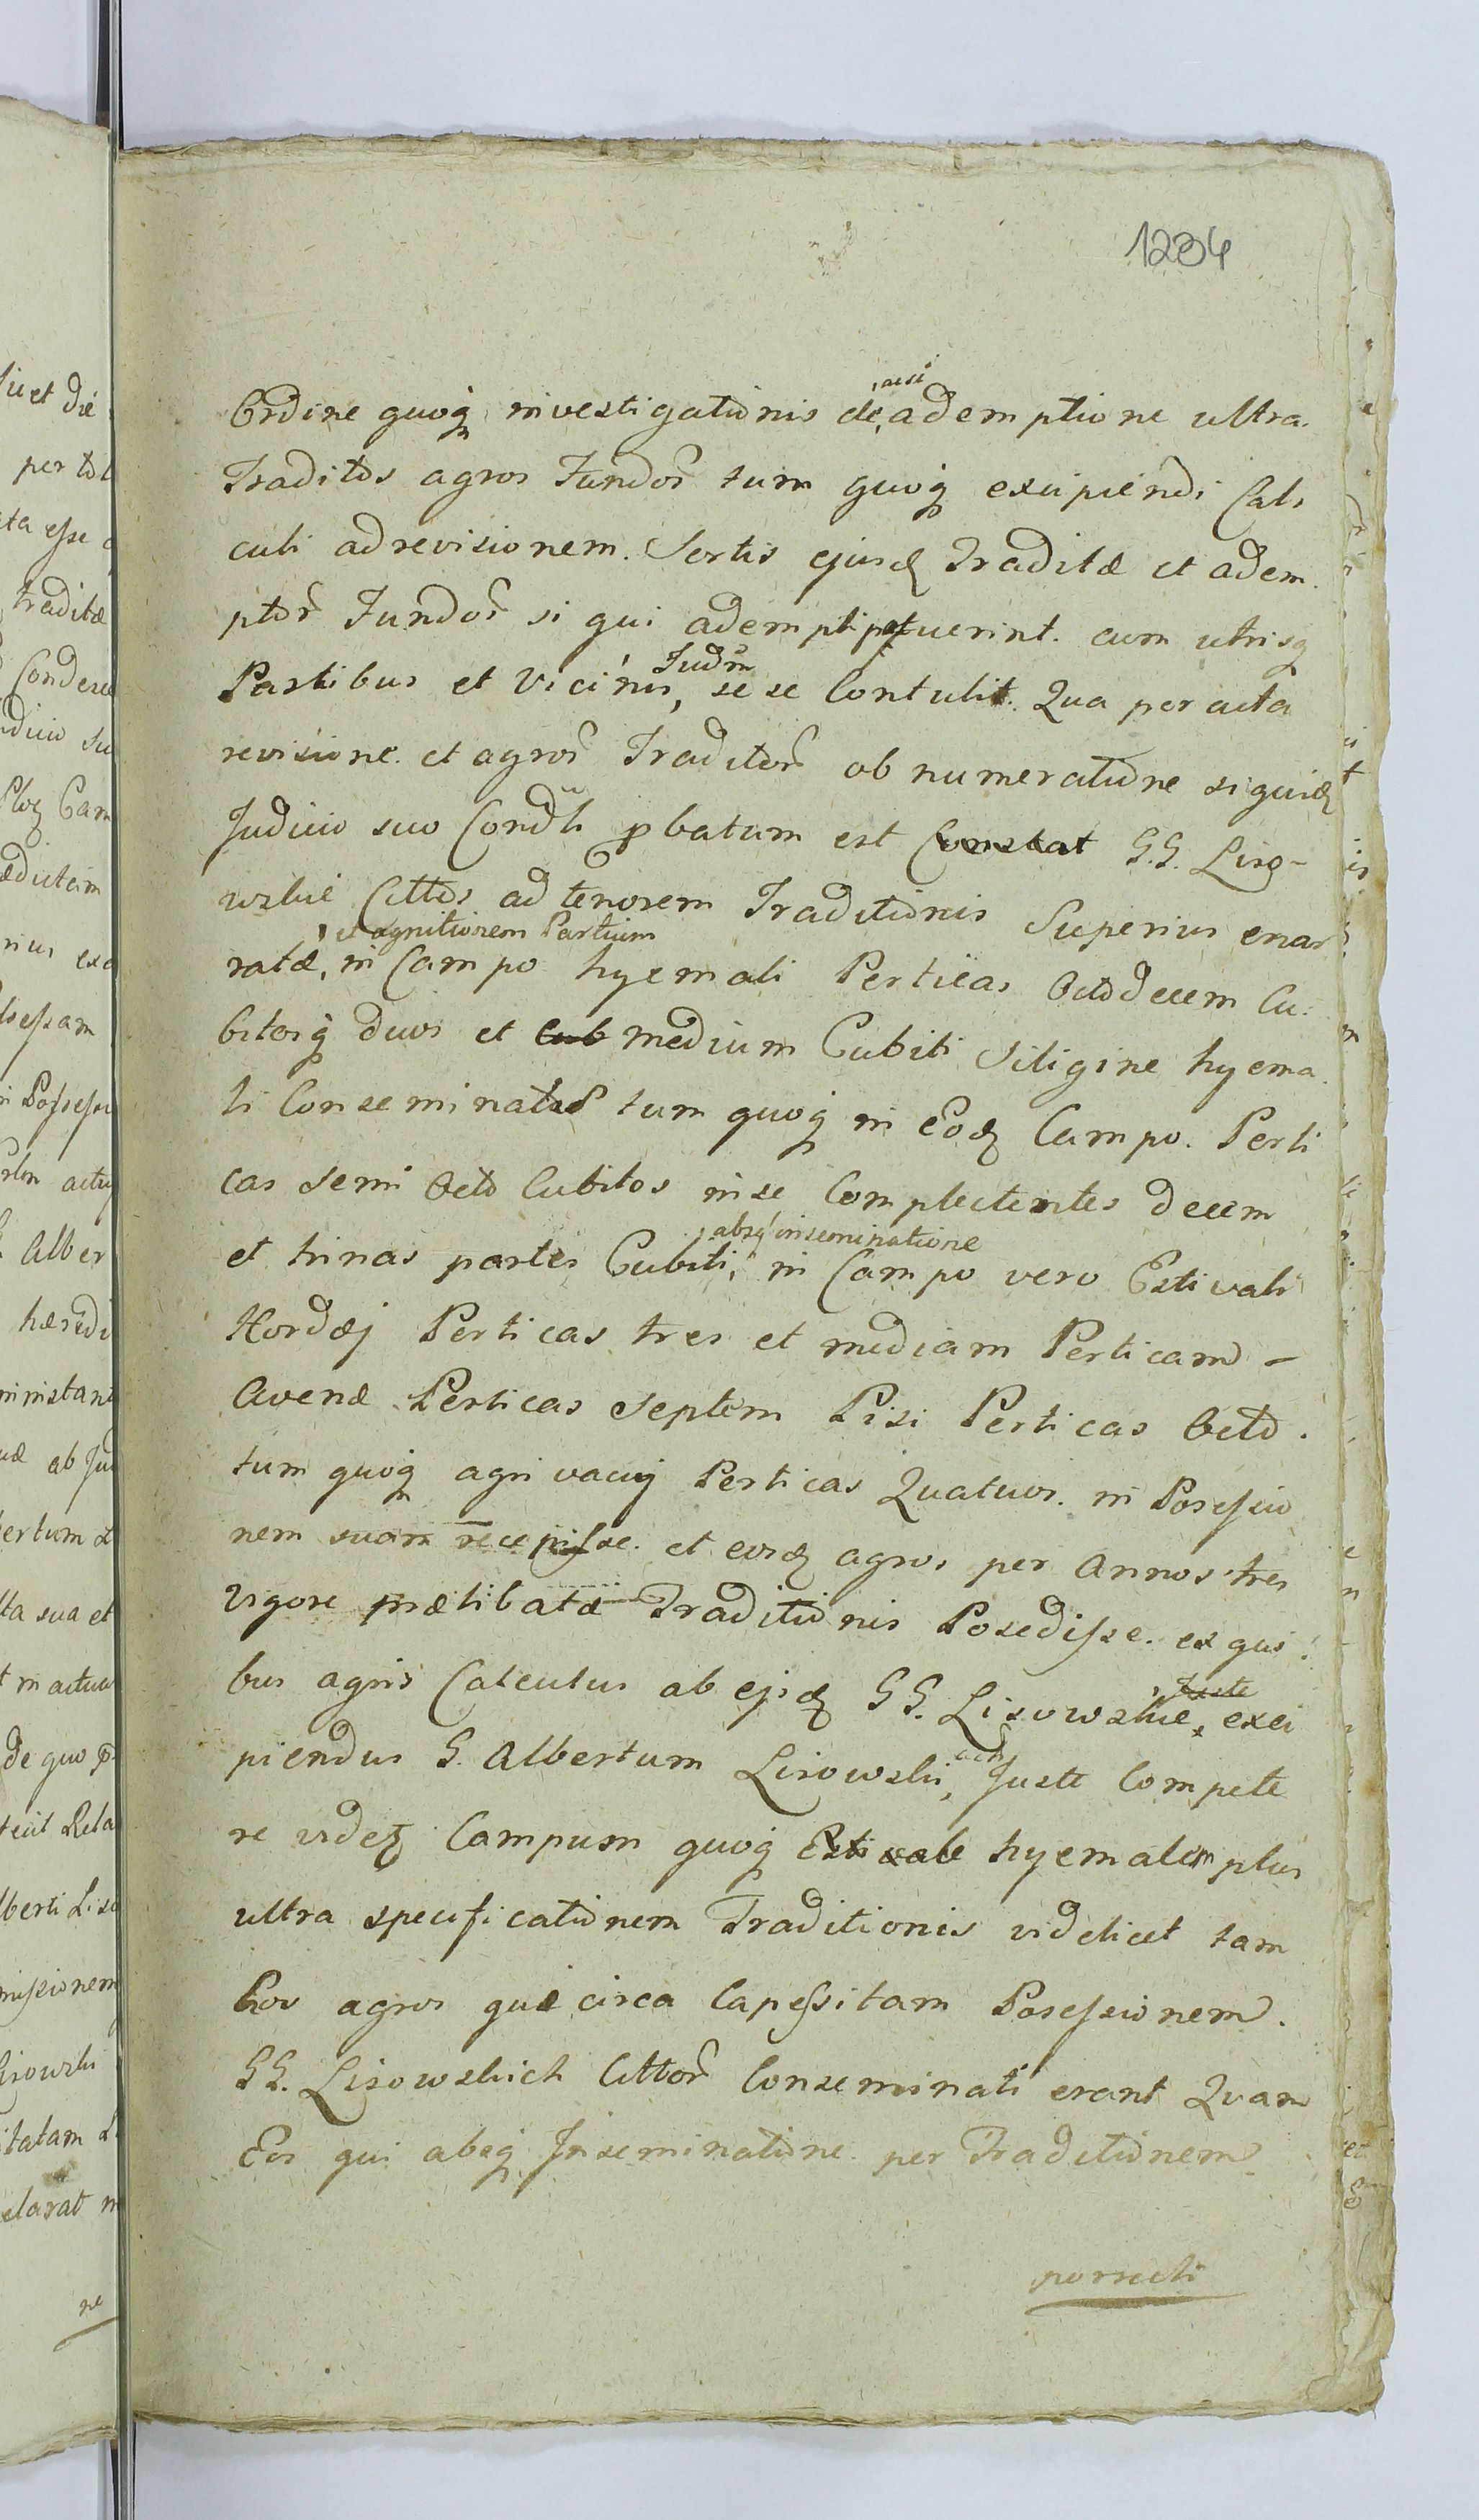 1234
Ordine quoq investigationis de ademptione ultra
Traditos agros Fundor tum quoq excipiendi Cal
culi ad revisionem. Sortis ejusd Traditæ et adem
ptor Fundor si qui adempti fuerint. cum utrisq
Judm
Partibus et Vicinis, sese Contulit. Qua peracta
revisione. et agror Traditor obnumeratione siquid
Judicio suo Condli pbatum est Constat G.G. Liso-
wskie Cittos ad tenorem Traditionis Superius enar
et agnitionem Partium
ratæ, in Campo hyemali Perticas Octodecem Cu
bitosq duos et Cub medium Cubiti Siligine hyema
li Conseminatas tum quoq in Eod Campo. Perti
cas Semi Octo Cubitos in se Complectentes decem
absq inseminatione
et trinas partes Cubiti, in Campo vero Estivali
Hordæj Perticas tres et mediam Perticam -
Avenæ Perticas Septem Pisi Perticas Octo.
tum quoq agri vacuj Perticas Quatuor. in Posessio
nem suam recepisse. et eosd agros per Annos tres
vigore prætibatæ Traditionis Posedisse. ex qui
bus agris Calculus ab ejsd GG. Lisowskie, exci
Juste
piendus G. Albertum Lisowski, Juste Compete
re videt Campum quoq Estivale hyemalem plus
ultra specificationem Traditionis videlicet tam
hos agros qui circa Capessitam Posessionem.
GG. Lisowskich Cittor Conseminati erant Quam
Eos qui absq Inseminatione per Traditionem
porrecti